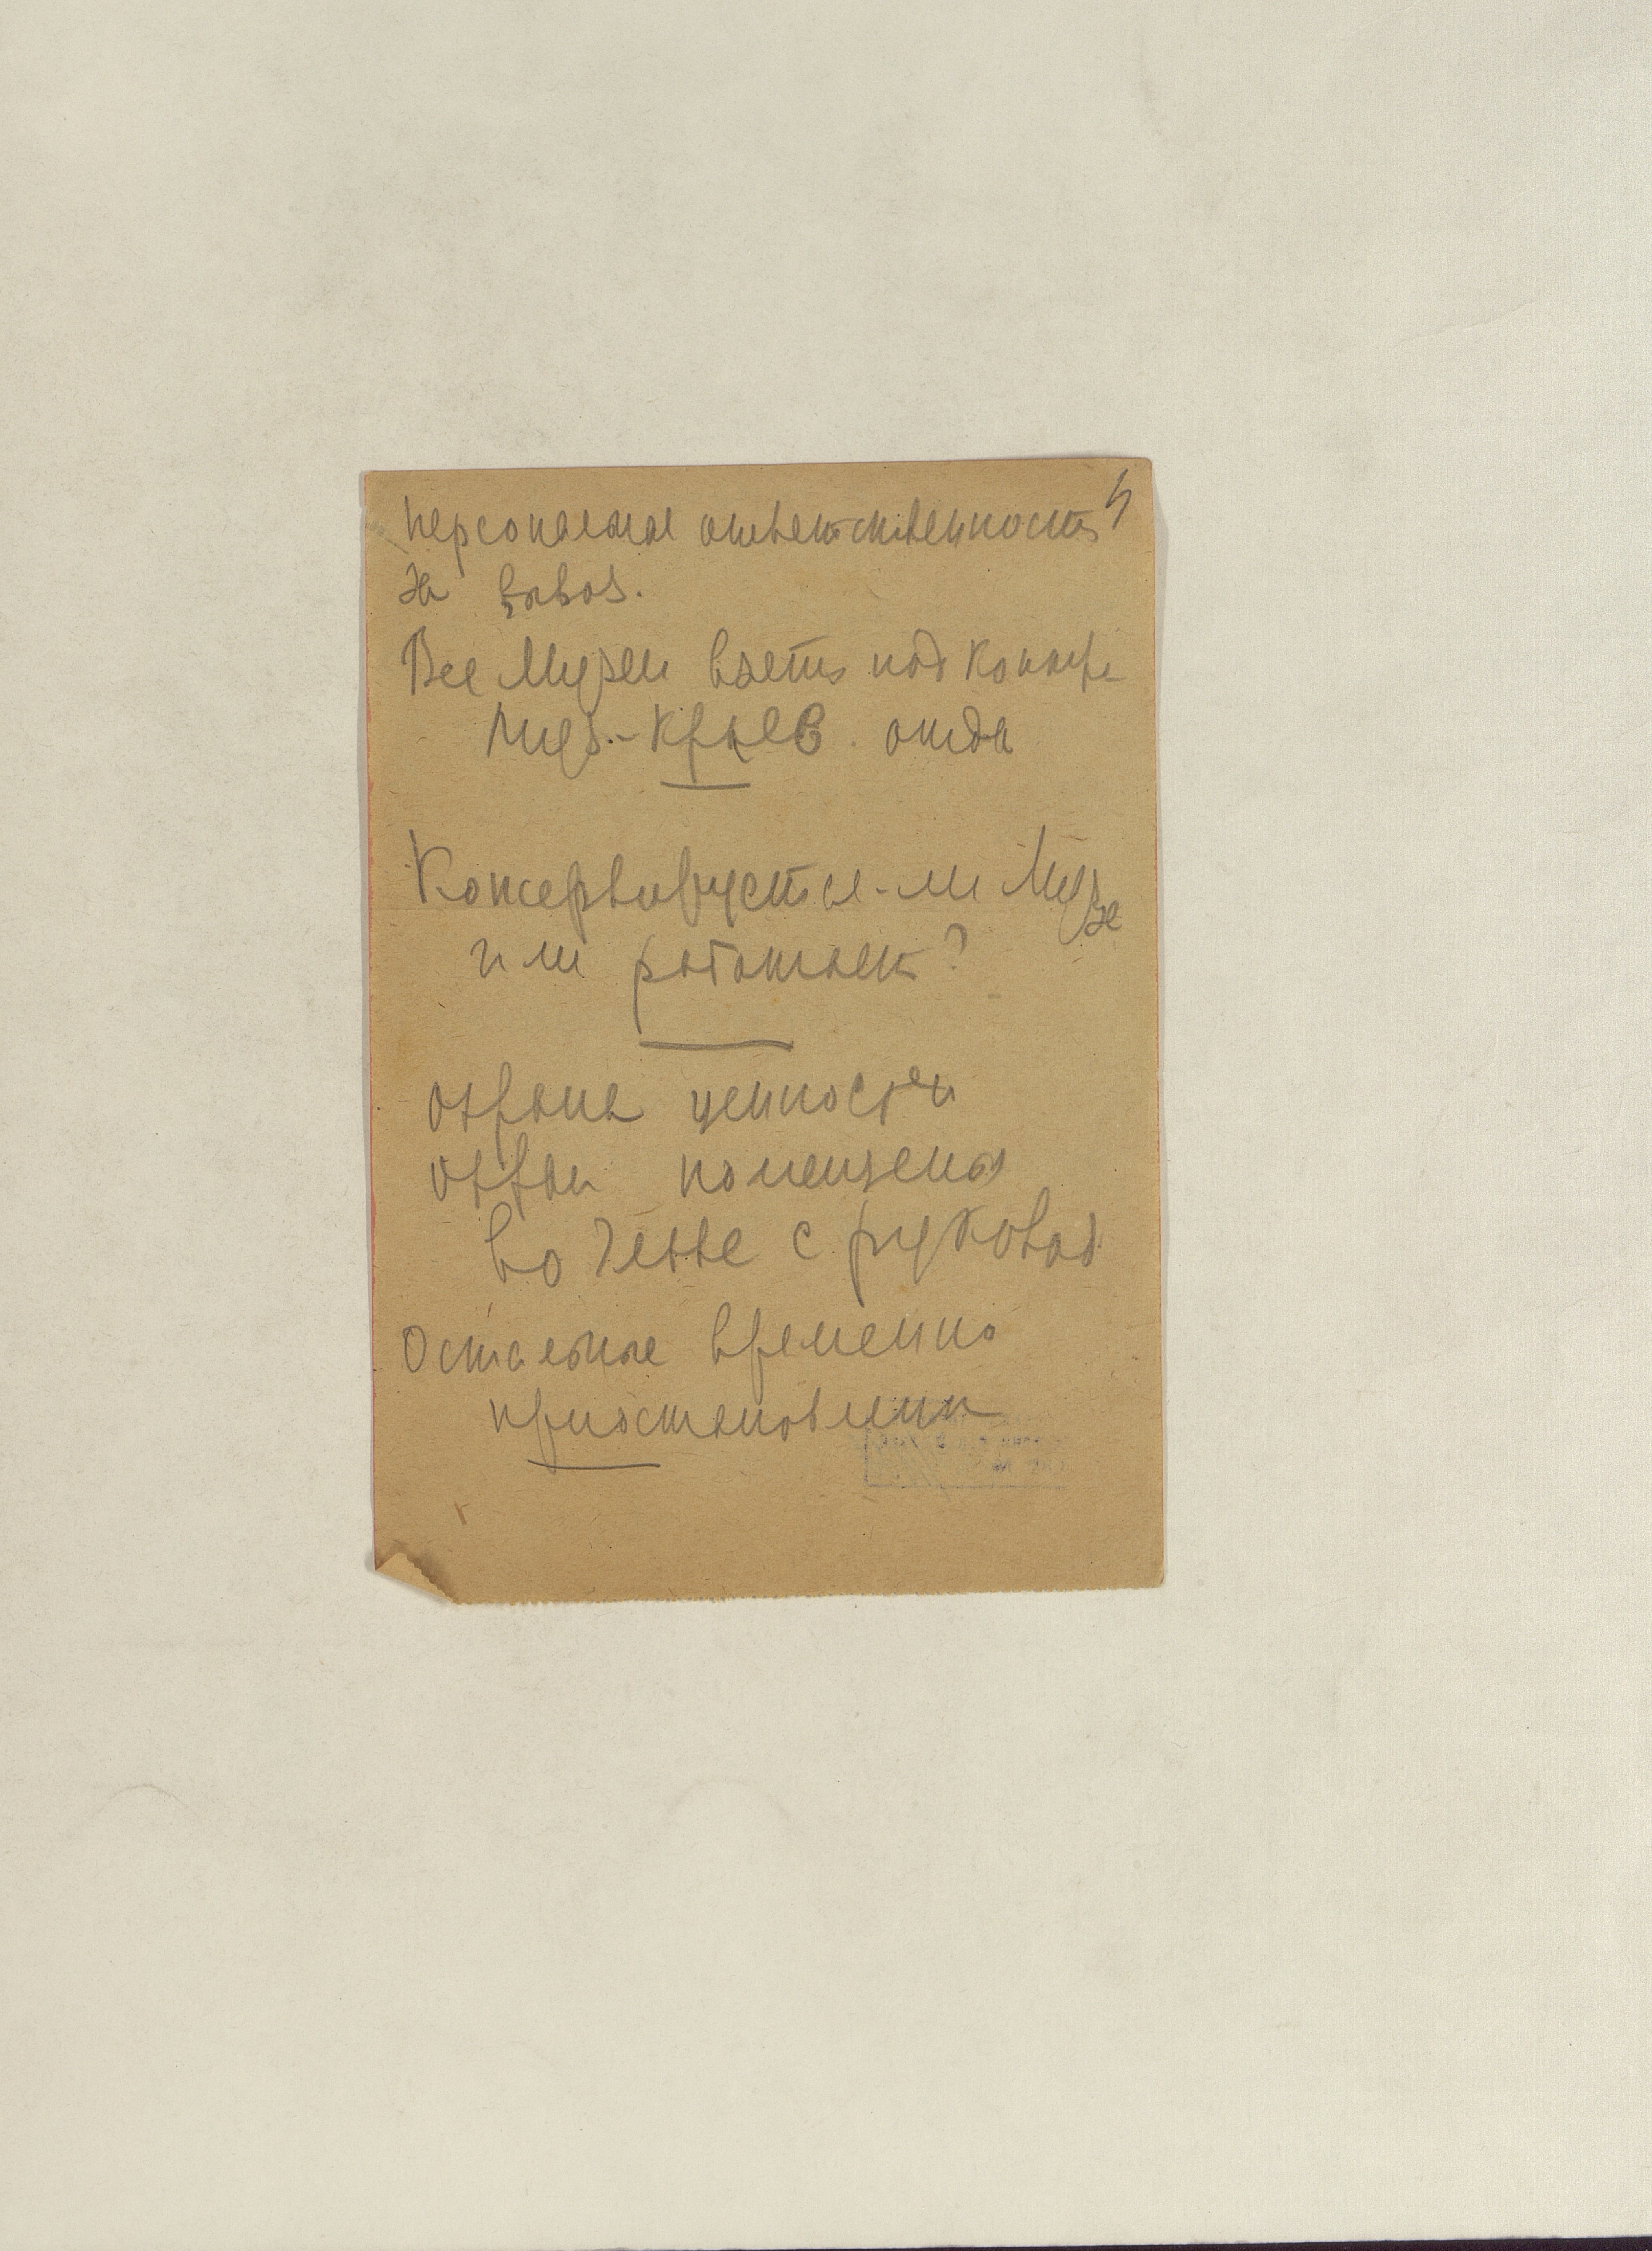 4
персональная ответственность
за вывоз.
Все Музеи взять под контр
Муз.-краев. отда
Консервируется-ли Музе
или работает?
охрана ценностей
охран помещения
во главе с руковод
Остальные временно
приостановлен